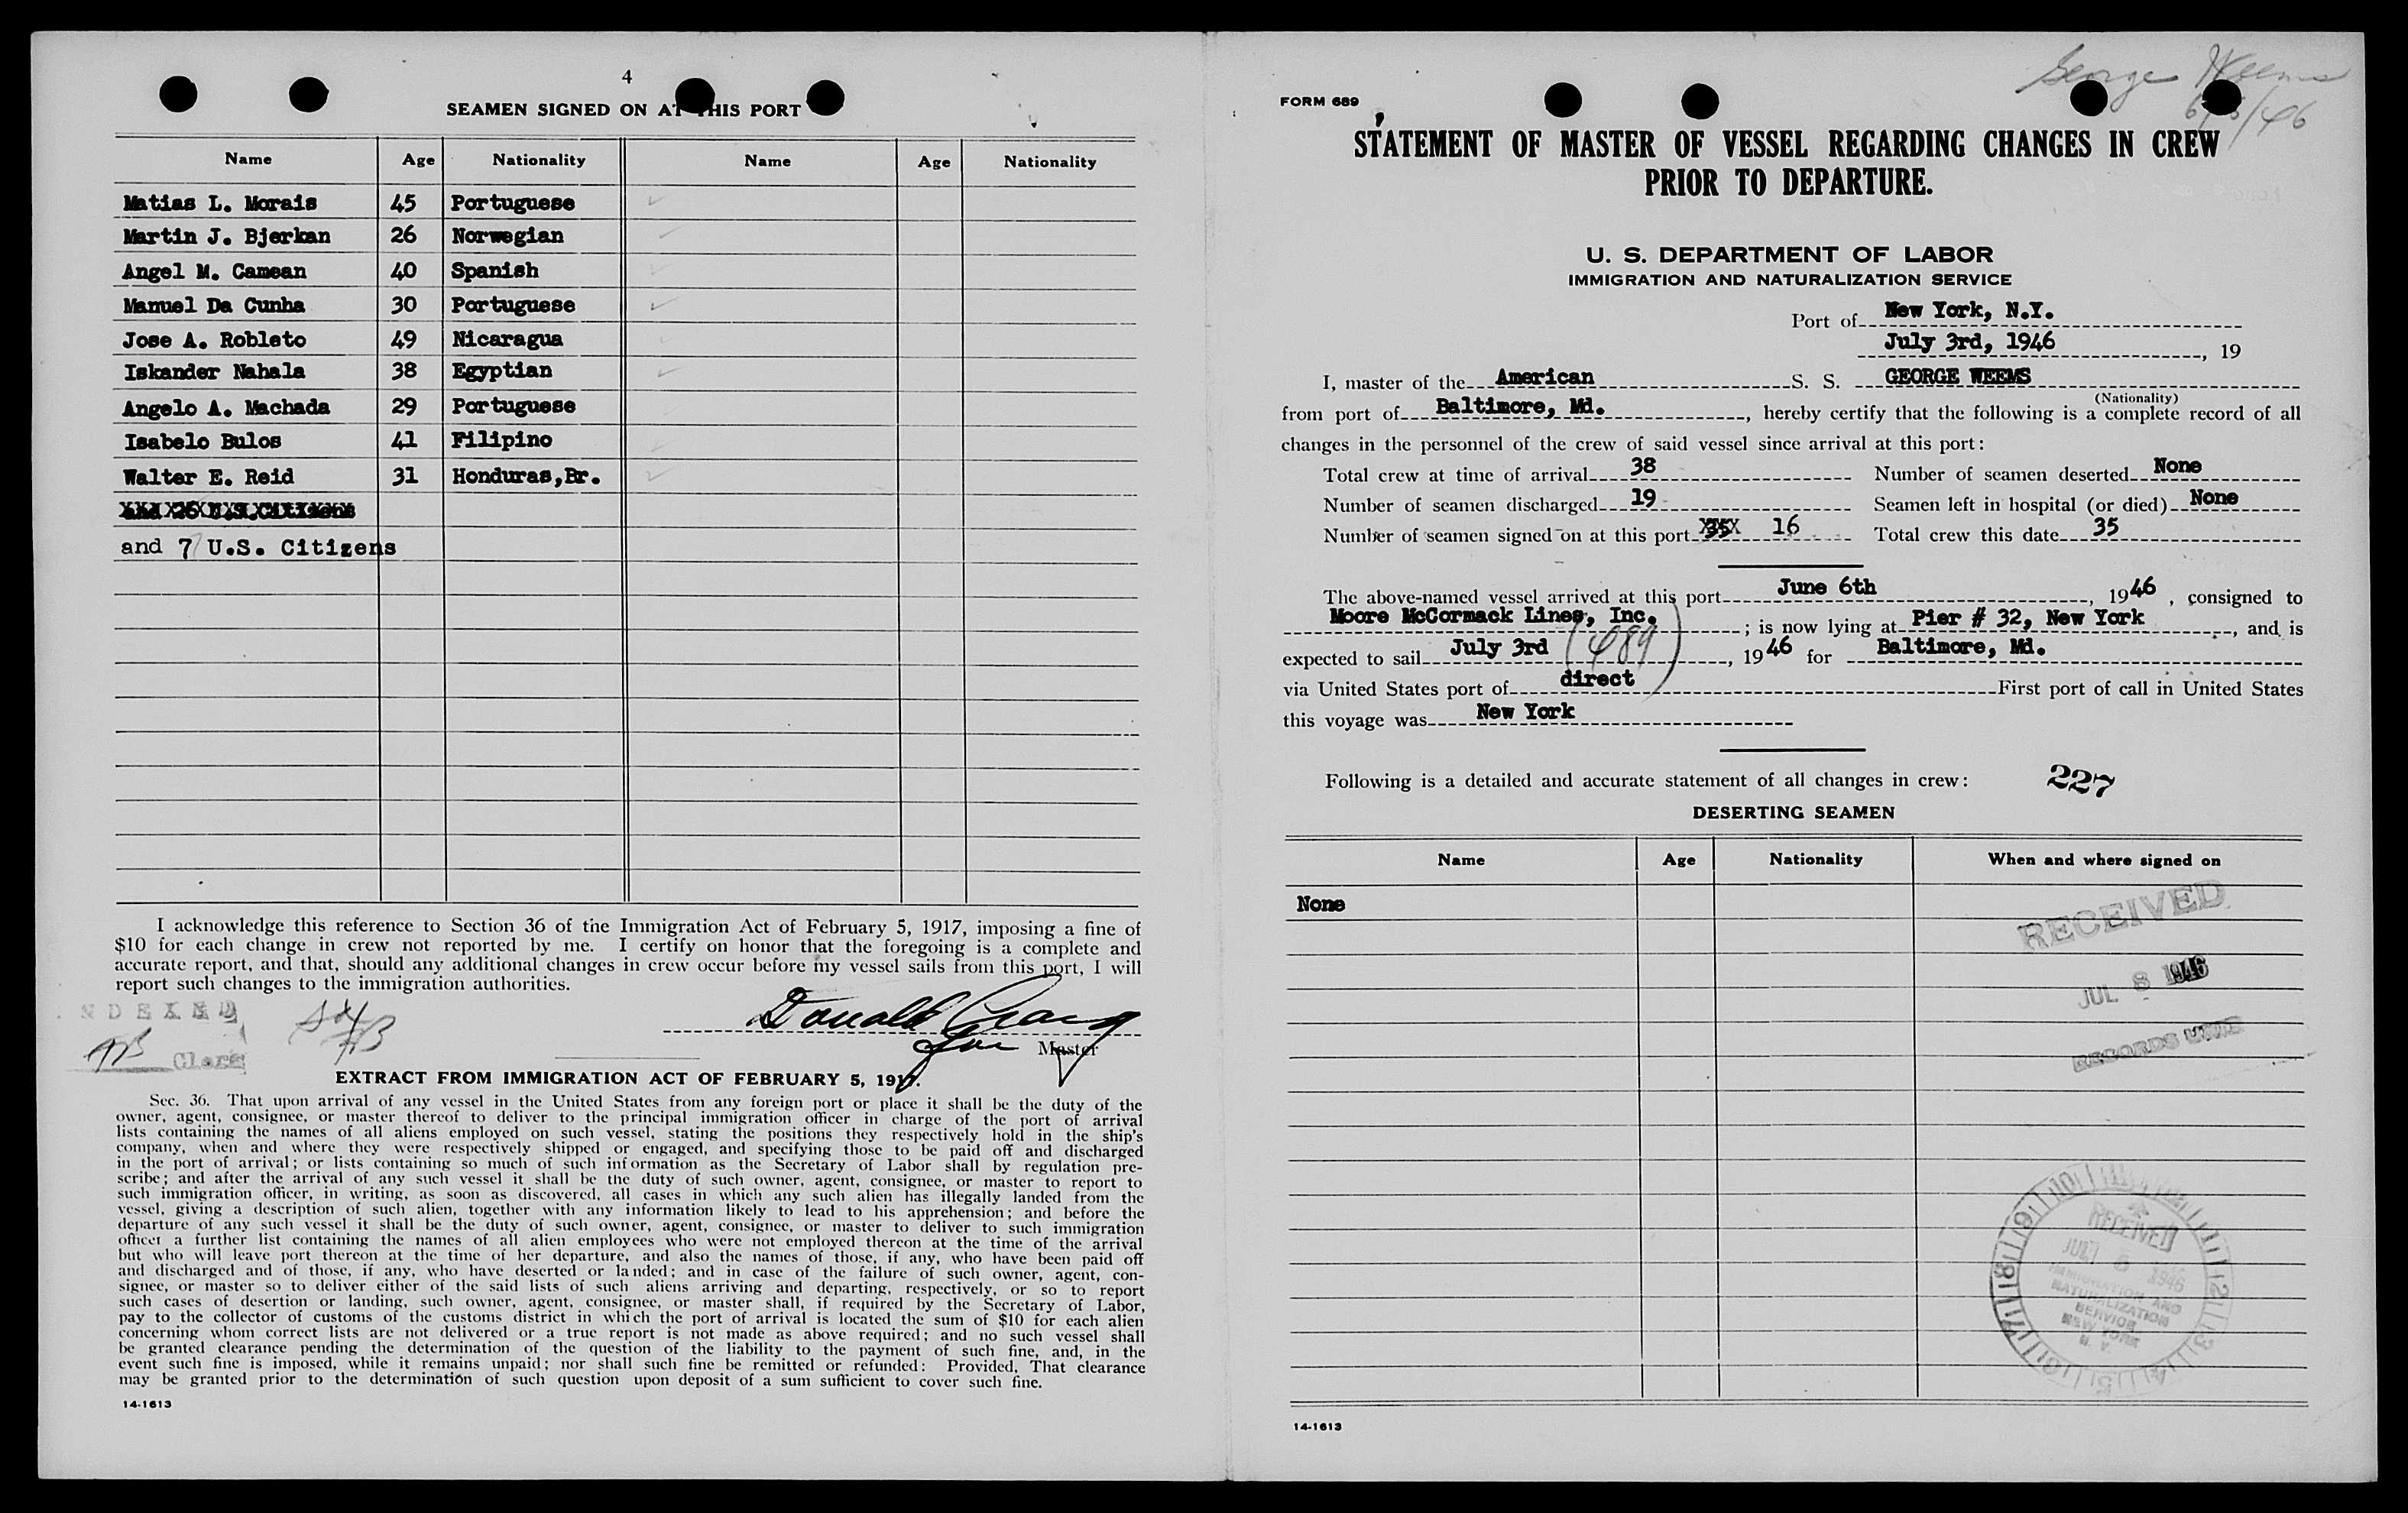 4
SEAMEN SIGNED ON AT THIS PORT
Name Age Nationality Name Age Nationality
Matias L. Morais 45 Portuguese
Martin J. Bjerkan 26 Norwegian
Angel M. Camean 40 Spanish
Manuel Da Cunha 30 Portuguese
Jose A. Robleto 49 Nicaragua
Iskander Nahala 38 Egyptian
Angelo A. Machada 29 Portuguese
Isabelo Bulos 41 Filipino
Walter E. Reid 31 Honduras,Br.
and 7 U.S. Citizens
I acknowledge this reference to Section 36 of the Immigration Act of February 5, 1917, imposing a fine of
$10 for each change in crew not reported by me. I certify on honor that the foregoing is a complete and
accurate report, and that, should any additional changes in crew occur before my vessel sails from this port, I will
report such changes to the immigration authorities.
INDEXED
Clerk
Donald Craig
for Master
EXTRACT FROM IMMIGRATION ACT OF FEBRUARY 5, 1917.
Sec. 36. That upon arrival of any vessel in the United States from any foreign port or place it shall be the duty of the
owner, agent, consignee, or master thereof to deliver to the principal immigration officer in charge of the port of arrival
lists containing the names of all aliens employed on such vessel, stating the positions they respectively hold in the ship's
company, when and where they were respectively shipped or engaged, and specifying those to be paid off and discharged
in the port of arrival; or lists containing so much of such information as the Secretary of Labor shall by regulation pre-
scribe; and after the arrival of any such vessel it shall be the duty of such owner, agent, consignee, or master to report to
such immigration officer, in writing, as soon as discovered, all cases in which any such alien has illegally landed from the
vessel, giving a description of such alien, together with any information likely to lead to his apprehension; and before the
departure of any such vessel it shall be the duty of such owner, agent, consignee, or master to deliver to such immigration
officer a further list containing the names of all alien employees who were not employed thereon at the time of the arrival
but who will leave port thereon at the time of her departure, and also the names of those, if any, who have been paid off
and discharged and of those, if any, who have deserted or landed; and in case of the failure of such owner, agent, con-
signee, or master so to deliver either of the said lists of such aliens arriving and departing, respectively, or so to report
such cases of desertion or landing, such owner, agent, consignee, or master shall, if required by the Secretary of Labor,
pay to the collector of customs of the customs district in which the port of arrival is located the sum of $10 for each alien
concerning whom correct lists are not delivered or a true report is not made as above required; and no such vessel shall
be granted clearance pending the determination of the question of the liability to the payment of such fine, and, in the
event such fine is imposed, while it remains unpaid; nor shall such fine be remitted or refunded: Provided, That clearance
may be granted prior to the determination of such question upon deposit of a sum sufficient to cover such fine.
14-1613
George Weems
FORM 689
STATEMENT OF MASTER OF VESSEL REGARDING CHANGES IN CREW
PRIOR TO DEPARTURE.
U. S. DEPARTMENT OF LABOR
IMMIGRATION AND NATURALIZATION SERVICE
Port of New York, N.Y.
July 3rd, 1946, 19
I, master of the American S. S. GEORGE WEEMS
(Nationality)
from port of Baltimore, Md., hereby certify that the following is a complete record of all
changes in the personnel of the crew of said vessel since arrival at this port:
Total crew at time of arrival 38 Number of seamen deserted None
Number of seamen discharged 19 Seamen left in hospital (or died) None
Number of seamen signed on at this port 16 Total crew this date 35
The above-named vessel arrived at this port June 6th, 1946, consigned to
Moore McCormack Lines, Inc. ; is now lying at Pier # 32, New York, and is
expected to sail July 3rd (689), 1946 for Baltimore, Md.
via United States port of direct First port of call in United States
this voyage was New York
Following is a detailed and accurate statement of all changes in crew: 227
DESERTING SEAMEN
Name Age Nationality When and where signed on
None
RECEIVED
JUL 8 1946
RECORDS UNIT
RECEIVED
JUL 6 1946
IMMIGRATION AND
NATURALIZATION
SERVICE
NEW YORK
N. Y.
14-1613